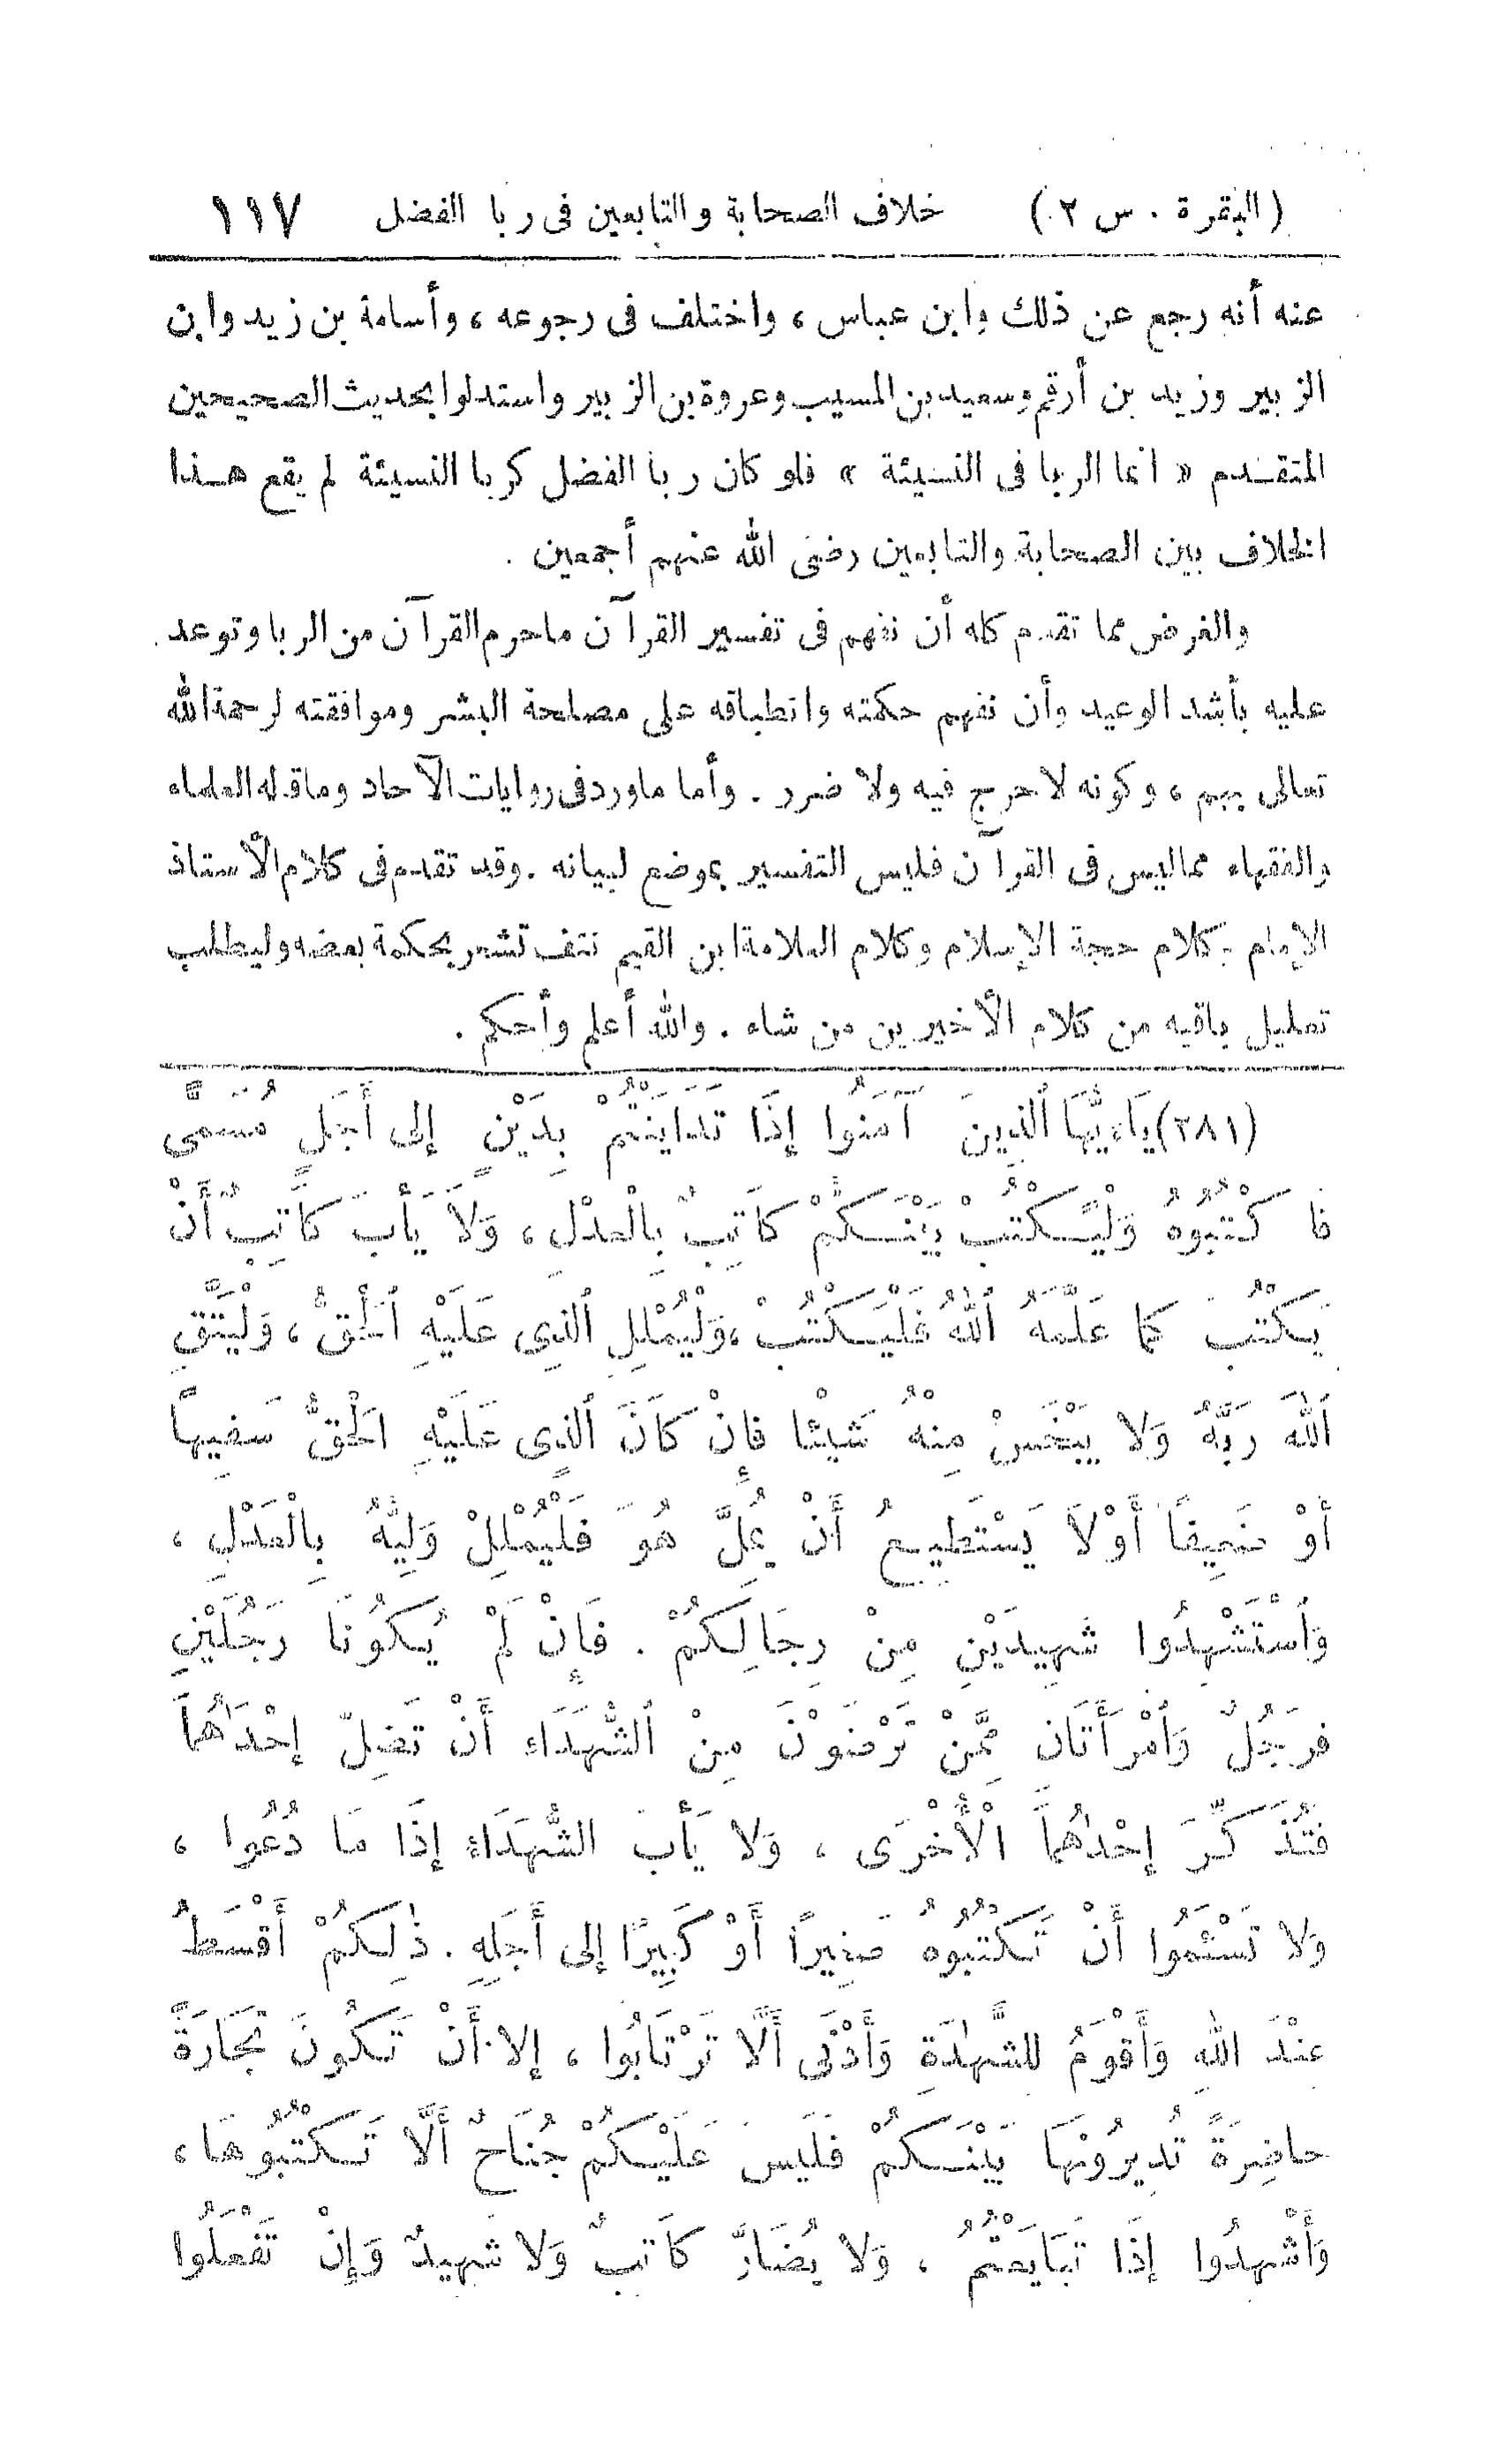 (البقرة . س ٢) خلاف الصحابة والتابعين فى ربا الفضل ١١٧
عنه أنه رجع عن ذلك وابن عباس ، واختلف فى رجوعه ، وأسامة بن زيد وابن
الزبير وزيد بن أرقم وسعيد بن المسيب وعروة بن الزبير واستدلوا بحديث الصحيحين
المتقدم « انما الربا فى النسيئة » فلو كان ربا الفضل كربا النسيئة لم يقع هذا
الخلاف بين الصحابة والتابعين رضى الله عنهم أجمعين .
والغرض مما تقدم كله أن نفهم فى تفسير القرآن ما حرم القرآن من الربا وتوعد
عليه بأشد الوعيد وأن نفهم حكمته وانطباقه على مصلحة البشر وموافقته لرحمة الله
تعالى بهم ، وكونه لا حرج فيه ولا ضرر . وأما ما ورد فى روايات الآحاد وما قاله العلماء
والفقهاء مما ليس فى القرآن فليس التفسير بموضع لبيانه . وقد تقدم فى كلام الأستاذ
الإمام وكلام حجة الإسلام وكلام العلامة ابن القيم نتف تشعر بحكمة بعضه وليطلب
تعليل باقيه من كلام الأخيرين من شاء . والله أعلم وأحكم .
(٢٨١) يَاءَيُّهَا ٱلَّذِينَ آمَنُوا إِذَا تَدَايَنْتُمْ بِدَيْنٍ إِلى أَجَلٍ مُسَمًّى
فَاكْتُبُوهُ وَلْيَكْتُبْ بَيْنَكُمْ كَاتِبٌ بِالْعَدْلِ ، وَلَا يَأْبَ كَاتِبٌ أَنْ
يَكْتُبَ كَمَا عَلَّمَهُ ٱللهُ فَلْيَكْتُبْ ، وَلْيُمْلِلِ ٱلَّذِى عَلَيْهِ ٱلْحَقُّ ، وَلْيَتَّقِ
ٱللهَ رَبَّهُ وَلا يَبْخَسْ مِنْهُ شَيْئًا فَإِنْ كَانَ ٱلَّذِى عَلَيْهِ الْحَقُّ سَفِيهًا
أَوْ ضَعِيفًا أَوْ لَا يَسْتَطِيعُ أَنْ يُمِلَّ هُوَ فَلْيُمْلِلْ وَلِيُّهُ بِالْعَدْلِ ،
وَٱسْتَشْهِدُوا شَهِيدَيْنِ مِنْ رِجَالِكُمْ . فَإِنْ لَمْ يَكُونَا رَجُلَيْنِ
فَرَجُلٌ وَٱمْرَأَتَانِ مِمَّنْ تَرْضَوْنَ مِنَ ٱلشُّهَدَاءِ أَنْ تَضِلَّ إِحْدَاهُمَا
فَتُذَكِّرَ إِحْدَاهُمَا الْأُخْرَى ، وَلا يَأْبَ الشُّهَدَاءُ إِذَا مَا دُعُوا ،
وَلا تَسْئَمُوا أَنْ تَكْتُبُوهُ صَغِيرًا أَوْ كَبِيرًا إِلى أَجَلِهِ . ذٰلِكُمْ أَقْسَطُ
عِنْدَ اللهِ وَأَقْوَمُ لِلشَّهٰدَةِ وَأَدْنَى أَلَّا تَرْتَابُوا ، إِلا أَنْ تَكُونَ تِجَارَةً
حاضِرَةً تُدِيرُونَهَا بَيْنَكُمْ فَلَيْسَ عَلَيْكُمْ جُنَاحٌ أَلَّا تَكْتُبُوهَا ،
وَأَشْهِدُوا إِذَا تَبَايَعْتُمْ ، وَلا يُضَارَّ كَاتِبٌ وَلا شَهِيدٌ وَإِنْ تَفْعَلُوا